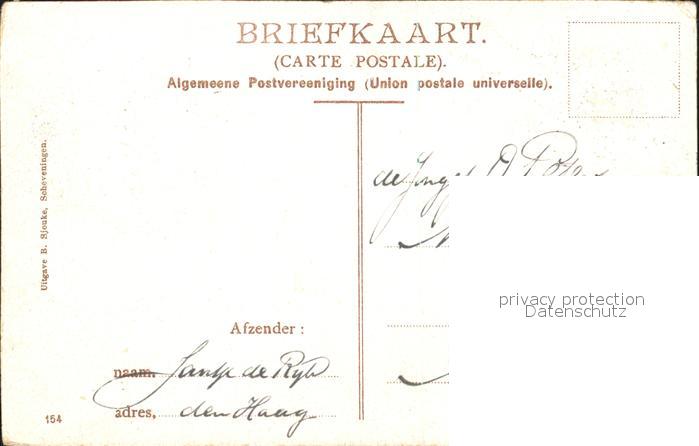 BRIEFKAART.
(CARTE POSTALE).
Algemeene Postvereeniging (Union postale universelle).
Uitgave B. Sjouke, Scheveningen.
de
privacy protection
Datenschutz
Afzender :
naam. Jansje de
adres, den Haag
154